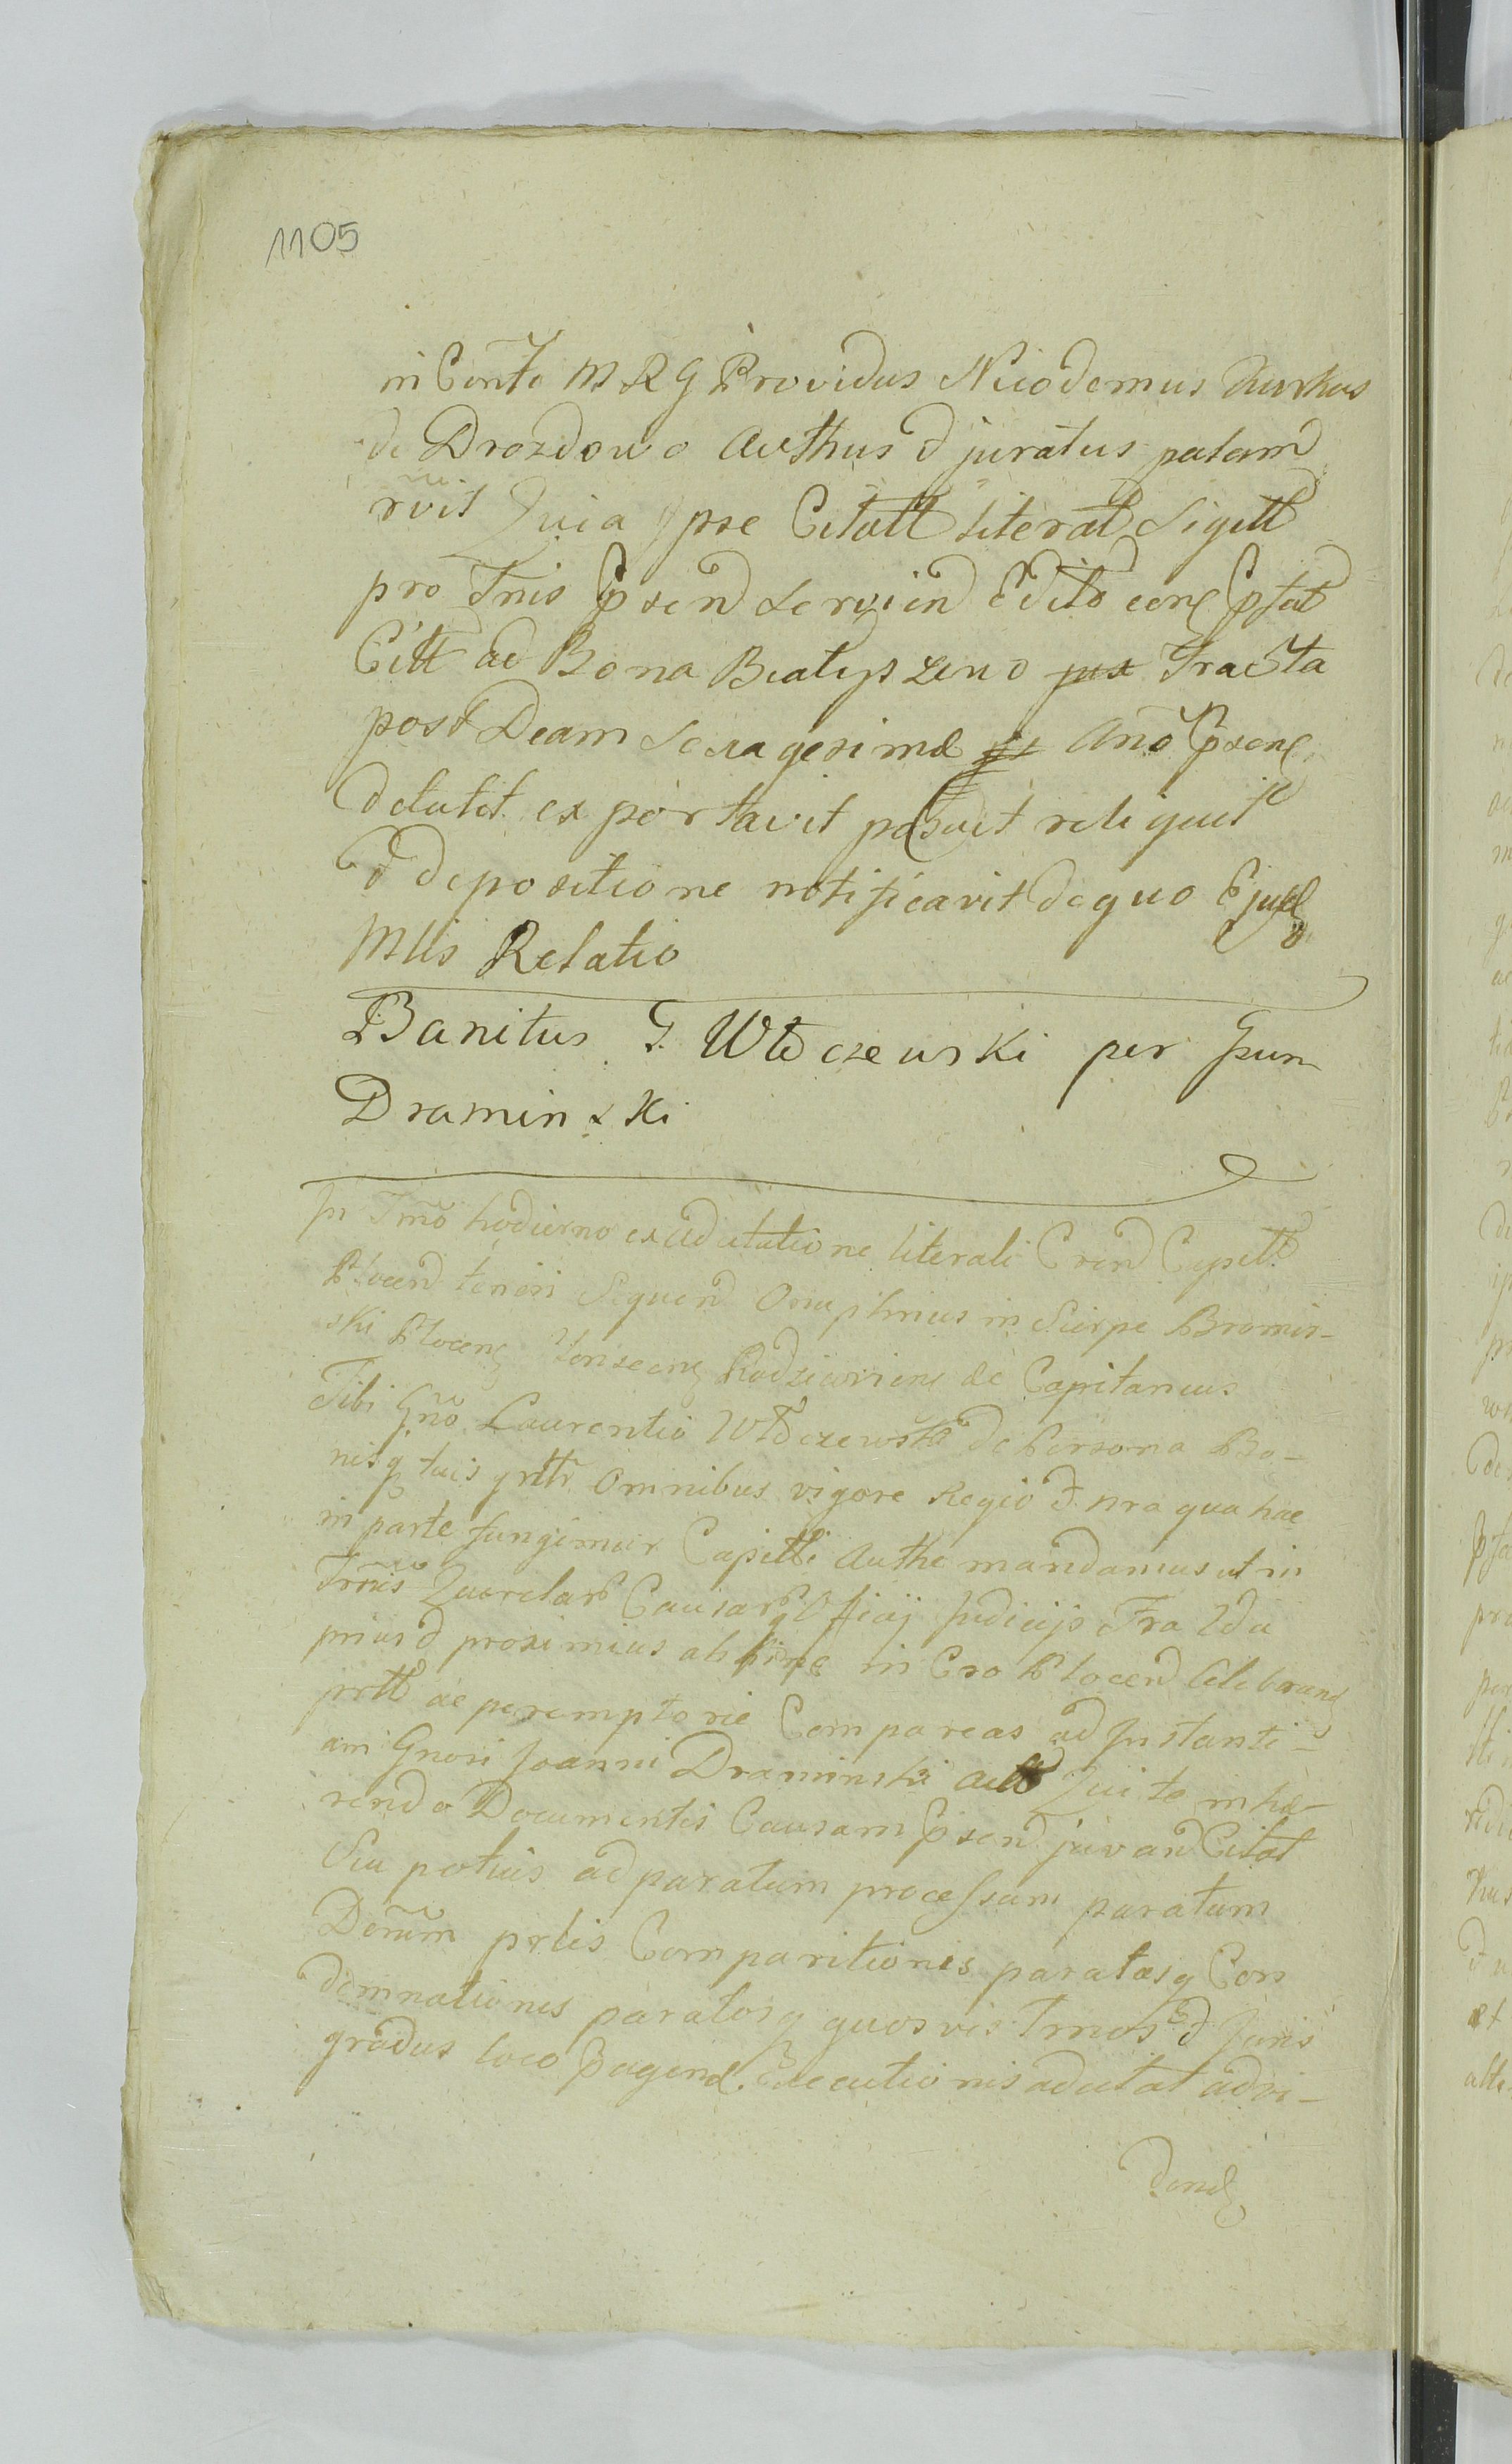 1105
in Conto M R G Providus Nicodemus Kurkus
de Drozdowo Authus & juratus palam
rvit Quia ipse Citatt literat Sigitt
pro Tnis psend Servien Edito eorg psat
Citt ad Bona Bialyszewo Tracta
post Deam Sexagesimæ Ano psend
detulit exportavit posuit reliquit
& depositione notificavit de quo Ejusd
Mtis Relatio
Banitus G. Włoczewski per Gsum
Draminski
In Tmo hodierno ex adcitatione literali Crend Cgsett
Plocend tenori Sequend Onuphrius in Sierpc Bromir-
ski Plocens Radziewiens &c Capitaneus
Tibi Gno Laurentio Włoczewski de Persona Bo-
nisq tuis gnltr Omnibus vigore Regio & nra qua hac
in parte fungimur Capittli Authe mandamus ut in
Trnis Querelar Causarq Officij Judicijs Fra 2da
prius & proximius abhinc in Cso Plocend Celebrand
prltt ac peremptorie Compareas ad Instanti-
am Gnosi Joanni Draminski Act Qui te inhæ-
rendo Documentis Causam psend juvand Citat
Seu potius ad paratum processum paratum
Dnum prlis Comparitionis paratasq Con
demnationis paratosq quosvis Tmos & Juris
gradus loco peragend. Executionis adcitat advi-
dend